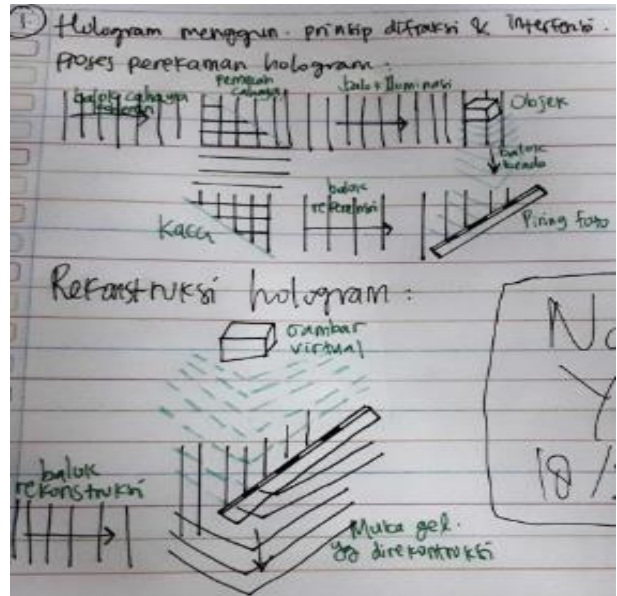 1) Hologram menggun. prinsip difraksi & interferensi.
Proses perekaman hologram :
balok cahaya
pemecah cahaya
balok Iluminasi
Objek
balok benda
Kaca
balok referensi
Piring foto
Rekonstruksi hologram :
Gambar virtual
balok rekonstruksi
Muka gel.
yg direkontruksi
18/